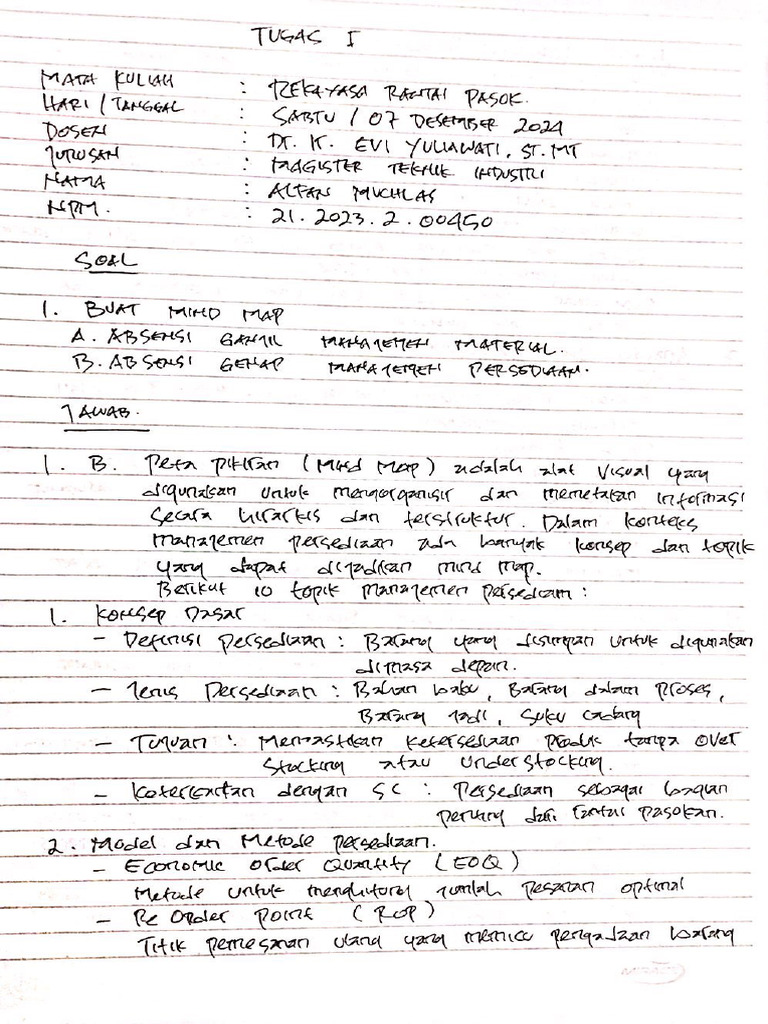 TUGAS I
MATA KULIAH : REKAYASA RANTAI PASOK.
HARI / TANGGAL : SABTU / 07 DESEMBER 2024
DOSEN : Dr. Ir. EVI YULIAWATI, ST. MT
JURUSAN : MAGISTER TEKNIK INDUSTRI
NAMA : ALFAN MUCHLAS
NPM. : 21. 2023. 2. 00450
SOAL
1. BUAT MIND MAP
A. ABSENSI GANJIL MANAJEMEN MATERIAL.
B. ABSENSI GENAP MANAJEMEN PERSEDIAAN.
JAWAB.
1. B. Peta pikiran (Mind Map) adalah alat visual yang
digunakan untuk mengorganisir dan memetakan informasi
secara hirarkis dan terstruktur. Dalam konteks
manajemen persediaan ada banyak konsep dan topik
yang dapat dijadikan mind map.
Berikut 10 topik manajemen persediaan :
1. Konsep Dasar
- Definisi persediaan : Barang yang disimpan untuk digunakan
dimasa depan.
- Jenis Persediaan : Bahan baku, Barang dalam proses,
Barang Jadi, Suku cadang
- Tujuan : Memastikan ketersediaan produk tanpa over
stocking atau understocking.
- Keterkaitan dengan SC : Persediaan sebagai bagian
penting dari rantai pasokan.
2. Model dan Metode persediaan.
- Economic Order Quantity (EOQ)
Metode untuk menghitung jumlah pesanan optimal
- Re Order Point (ROP)
Titik pemesanan ulang yang memicu pengadaan barang